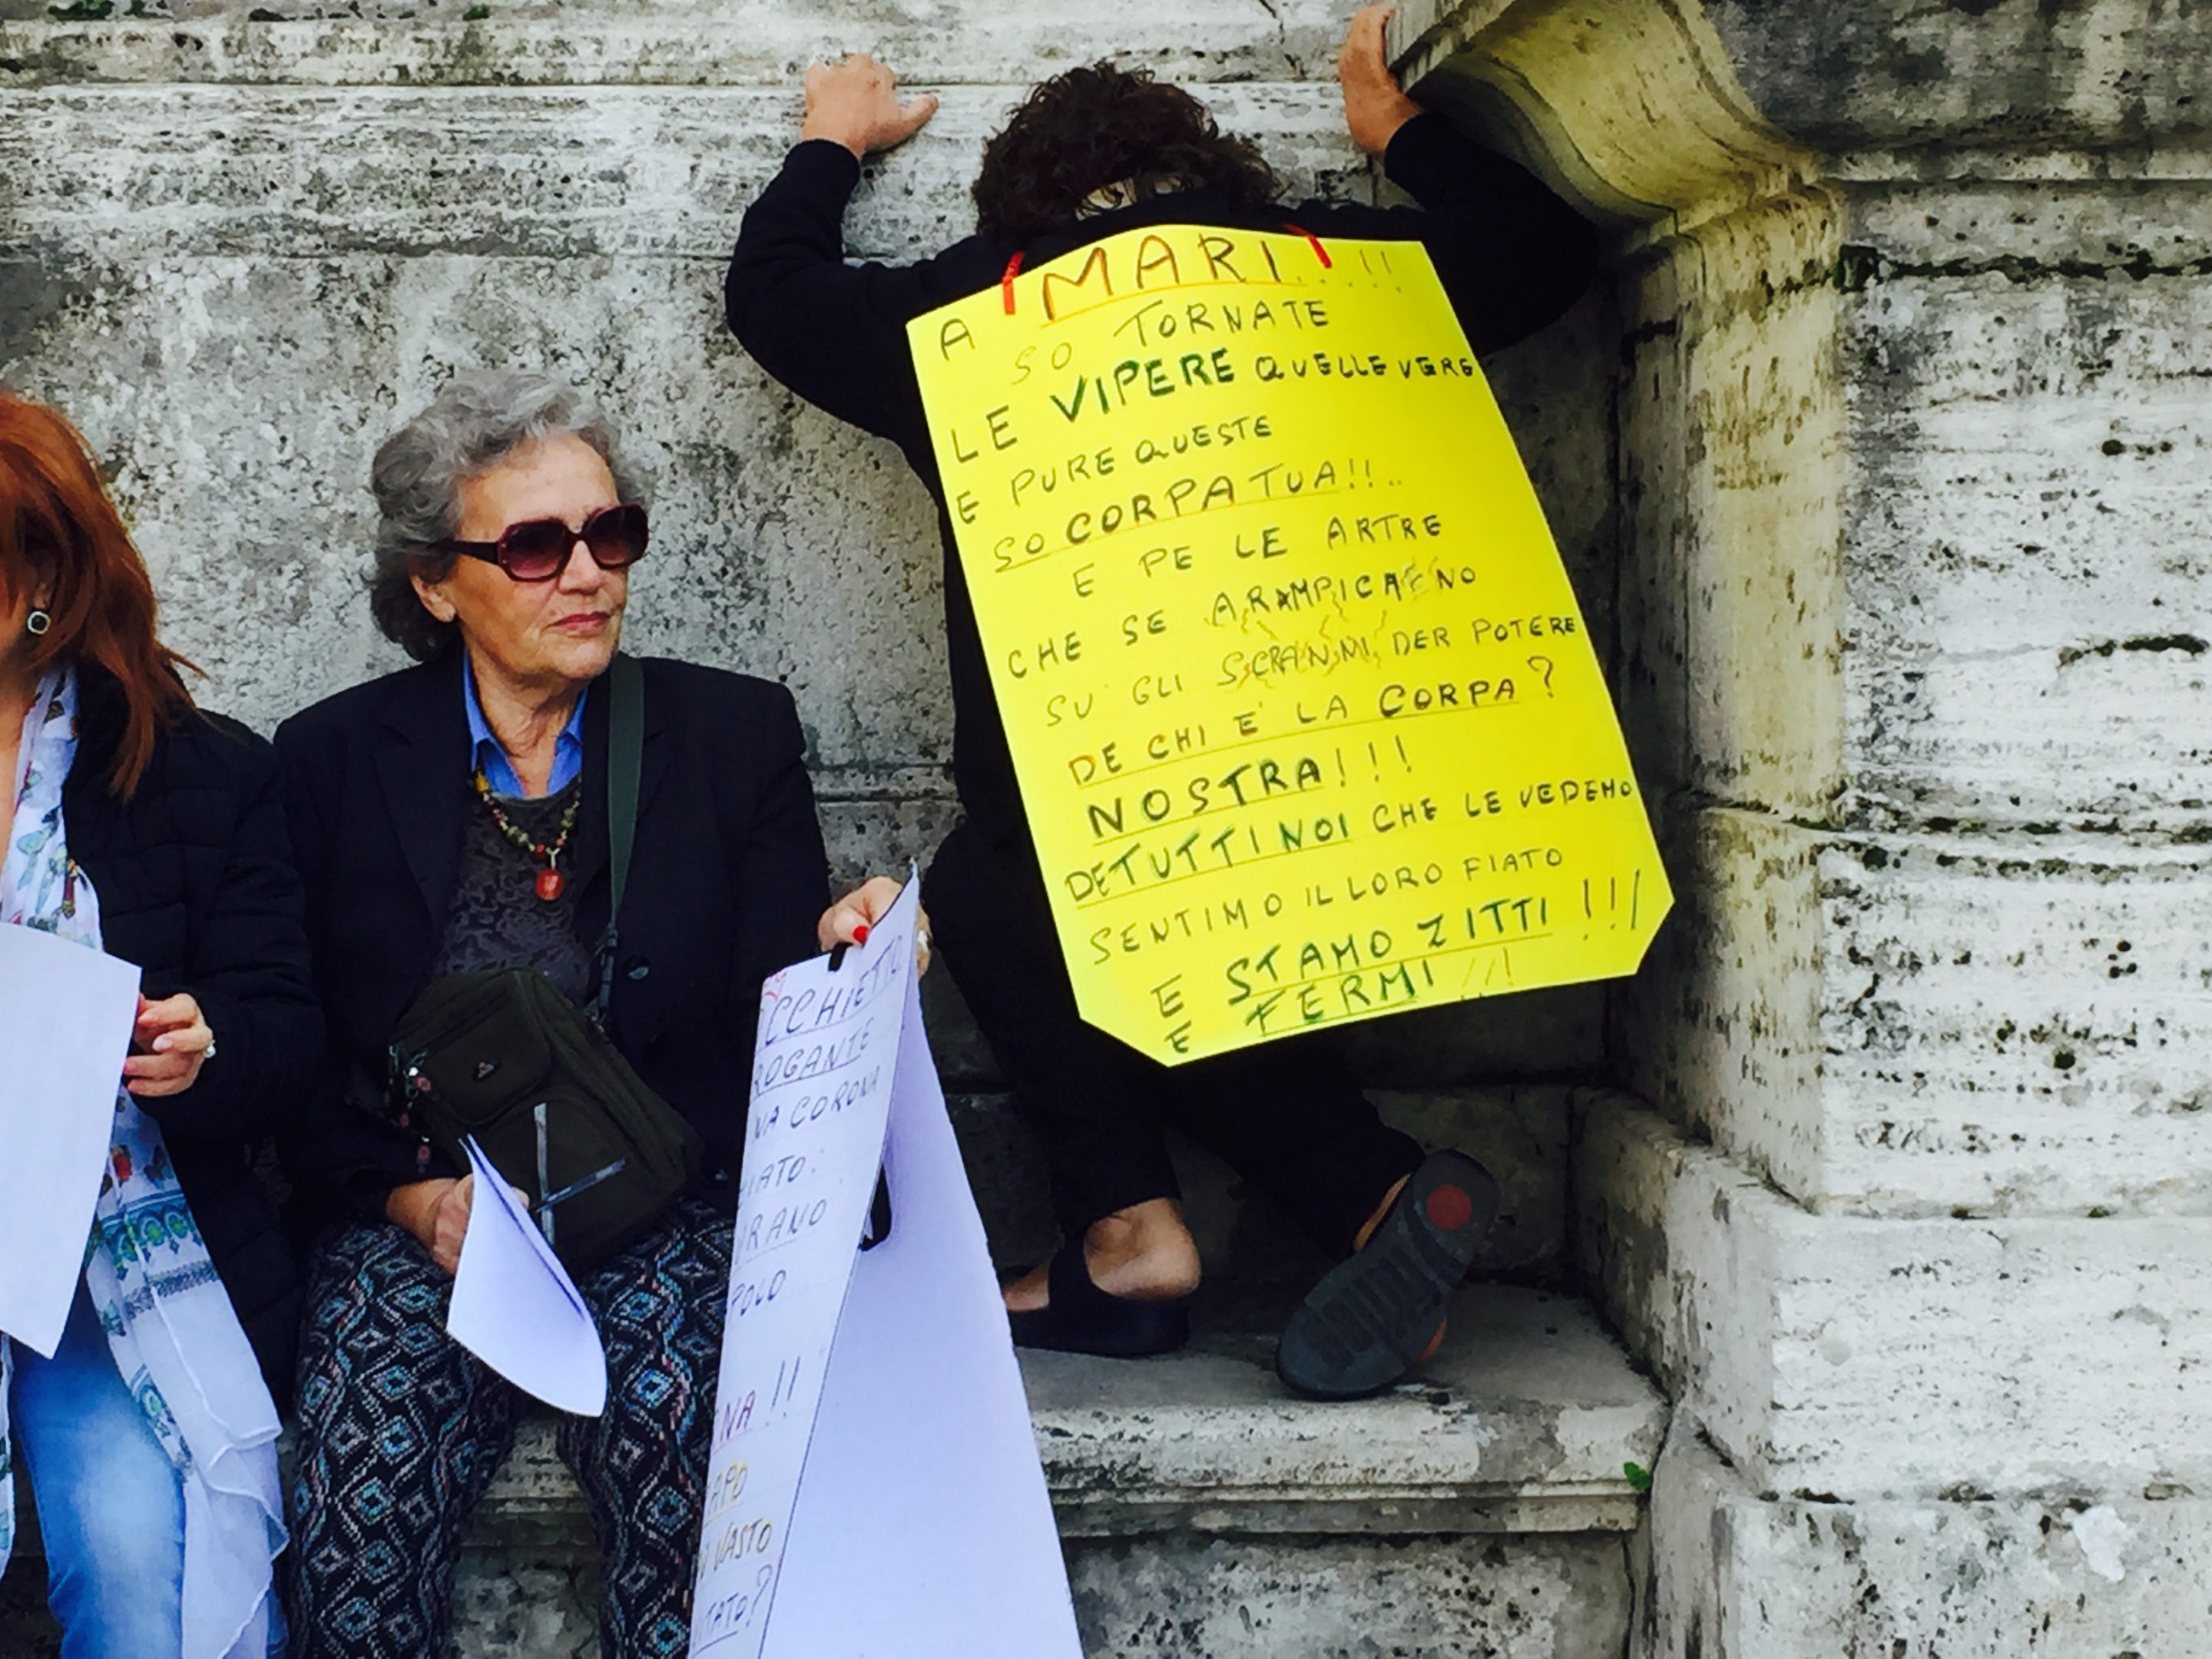 A MARI.....!!
SO TORNATE
LE VIPERE QUELLE VERE
E PURE QUESTE
SO CORPA TUA!!..
E PE LE ARTRE
CHE SE ARAMPICAENO
SU GLI SCRANNI DER POTERE
DE CHI E' LA CORPA?
NOSTRA!!!
DE TUTTI NOI CHE LE VEDEMO
SENTIMO IL LORO FIATO
E STAMO ZITTI!!!
E FERMI!!!
CCHIETTO
ROGANTE
NA CORONA
IATO:
RANO
POLO
NA!!
APO
VASTO
TATO?